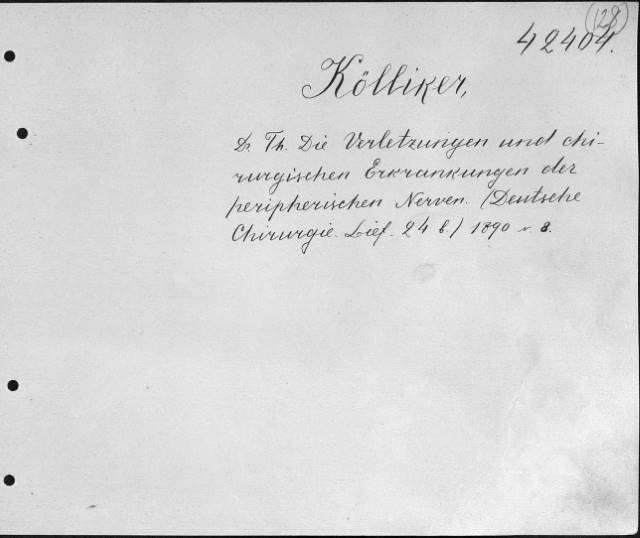 (128)
42404.
Kölliker,
Dr. Th. Die Verletzungen und chi-
rurgischen Erkrankungen der
peripherischen Nerven. (Deutsche
Chirurgie. Lief. 24 b.) 1890 n. 8.